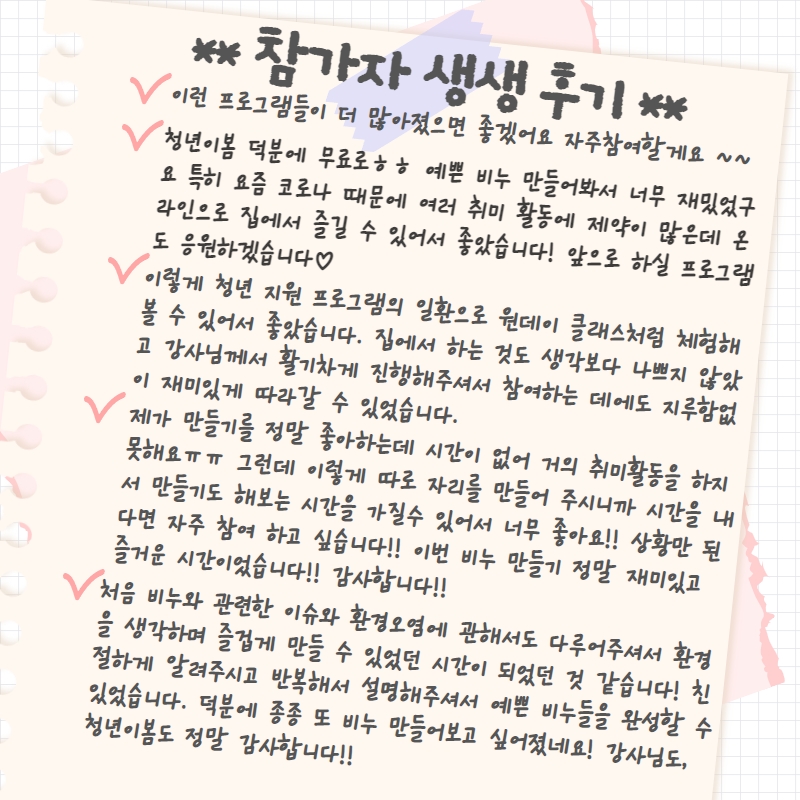 ** 참가자 생생 후기 **
이런 프로그램들이 더 많아졌으면 좋겠어요 자주참여할게요 ~~
청년이봄 덕분에 무료로ㅎㅎ 예쁜 비누 만들어봐서 너무 재밌었구
요 특히 요즘 코로나 때문에 여러 취미 활동에 제약이 많은데 온
라인으로 집에서 즐길 수 있어서 좋았습니다! 앞으로 하실 프로그램
도 응원하겠습니다♡
이렇게 청년 지원 프로그램의 일환으로 원데이 클래스처럼 체험해
볼 수 있어서 좋았습니다. 집에서 하는 것도 생각보다 나쁘지 않았
고 강사님께서 활기차게 진행해주셔서 참여하는 데에도 지루함없
이 재미있게 따라갈 수 있었습니다.
제가 만들기를 정말 좋아하는데 시간이 없어 거의 취미활동을 하지
못해요ㅠㅠ 그런데 이렇게 따로 자리를 만들어 주시니까 시간을 내
서 만들기도 해보는 시간을 가질수 있어서 너무 좋아요!! 상황만 된
다면 자주 참여 하고 싶습니다!! 이번 비누 만들기 정말 재미있고
즐거운 시간이었습니다!! 감사합니다!!
처음 비누와 관련한 이슈와 환경오염에 관해서도 다루어주셔서 환경
을 생각하며 즐겁게 만들 수 있었던 시간이 되었던 것 같습니다! 친
절하게 알려주시고 반복해서 설명해주셔서 예쁜 비누들을 완성할 수
있었습니다. 덕분에 종종 또 비누 만들어보고 싶어졌네요! 강사님도,
청년이봄도 정말 감사합니다!!